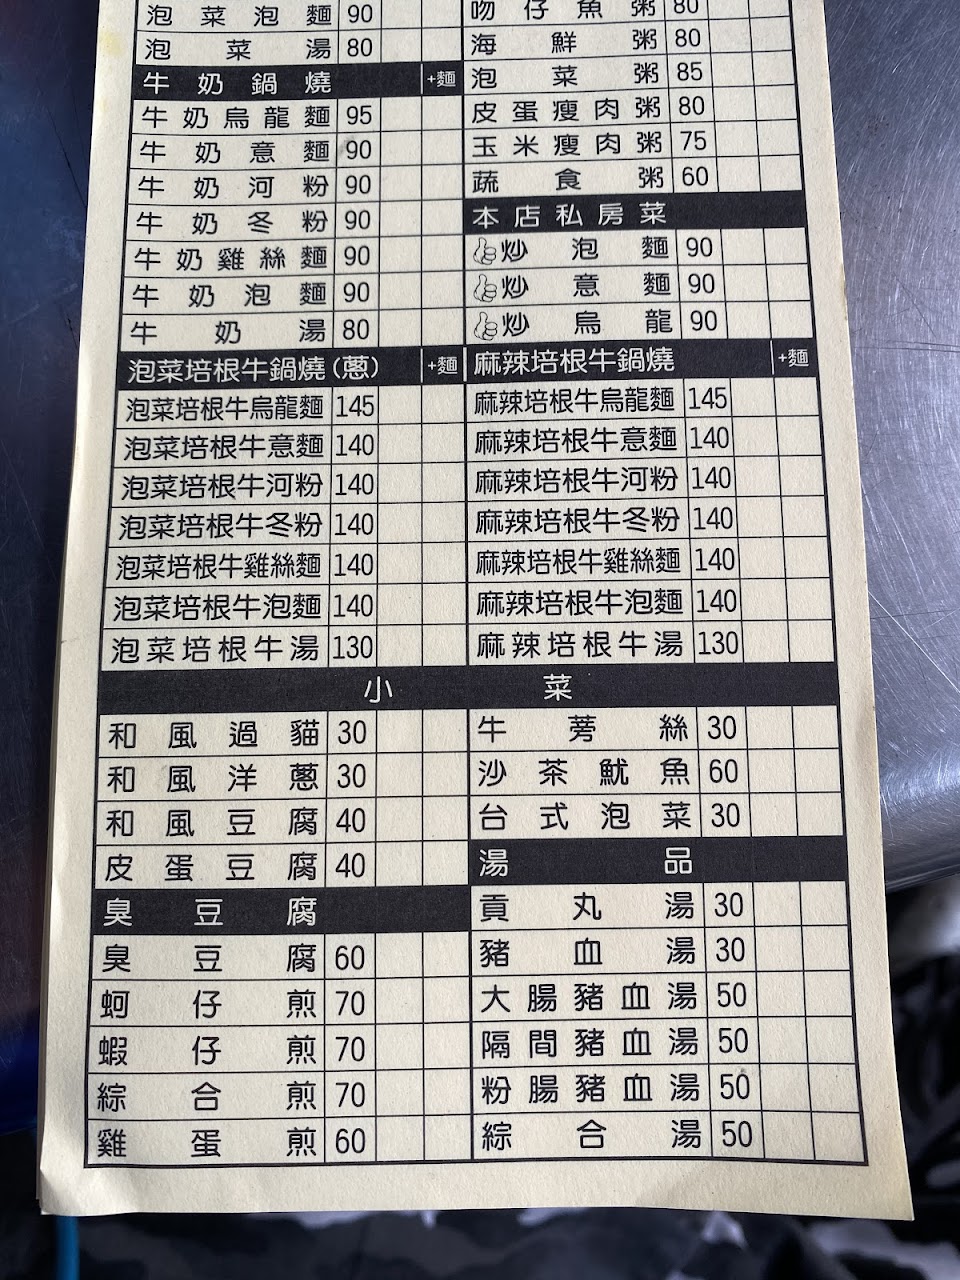 泡菜泡麵 90
泡菜湯 80
牛奶鍋燒 +麵
牛奶烏龍麵 95
牛奶意麵 90
牛奶河粉 90
牛奶冬粉 90
牛奶雞絲麵 90
牛奶泡麵 90
牛奶湯 80
泡菜培根牛鍋燒(蔥) +麵
泡菜培根牛烏龍麵 145
泡菜培根牛意麵 140
泡菜培根牛河粉 140
泡菜培根牛冬粉 140
泡菜培根牛雞絲麵 140
泡菜培根牛泡麵 140
泡菜培根牛湯 130
吻仔魚粥 80
海鮮粥 80
泡菜粥 85
皮蛋瘦肉粥 80
玉米瘦肉粥 75
蔬食粥 60
本店私房菜
炒泡麵 90
炒意麵 90
炒烏龍 90
麻辣培根牛鍋燒 +麵
麻辣培根牛烏龍麵 145
麻辣培根牛意麵 140
麻辣培根牛河粉 140
麻辣培根牛冬粉 140
麻辣培根牛雞絲麵 140
麻辣培根牛泡麵 140
麻辣培根牛湯 130
小菜
和風過貓 30
和風洋蔥 30
和風豆腐 40
皮蛋豆腐 40
臭豆腐
臭豆腐 60
蚵仔煎 70
蝦仔煎 70
綜合煎 70
雞蛋煎 60
牛蒡絲 30
沙茶魷魚 60
台式泡菜 30
湯品
貢丸湯 30
豬血湯 30
大腸豬血湯 50
隔間豬血湯 50
粉腸豬血湯 50
綜合湯 50